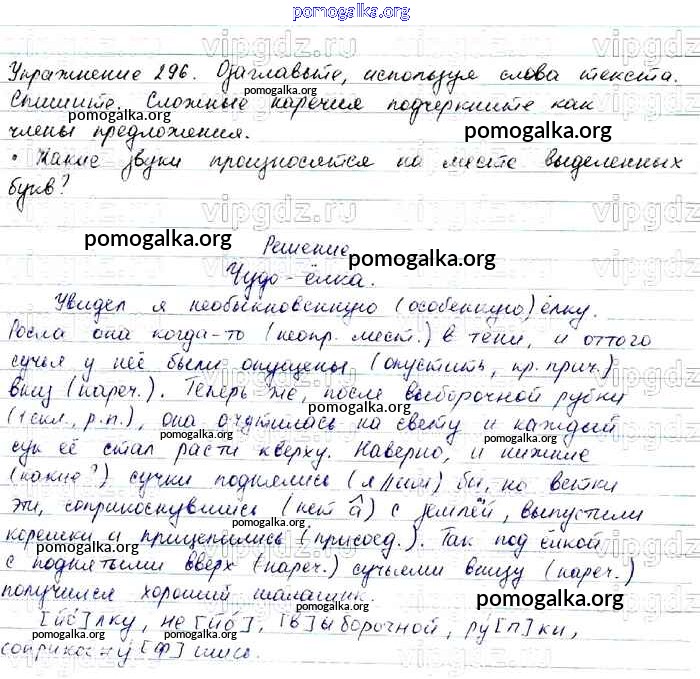 pomogalka.org
Упражнение 296. Озаглавьте, используя слова текста.
Спишите. Сложные наречия подчеркните как
pomogalka.org
члены предложения.
pomogalka.org
• Какие звуки произносятся на месте выделенных
букв?
pomogalka.org
Решение
pomogalka.org
Чудо-ёлка.
Увидел я необыкновенную (особенную) ёлку.
Росла она когда-то (неопр. мест.) в тени, и оттого
сучья у неё были опущены (опустить, пр. прич.)
вниз (нареч.). Теперь же, после выборочной рубки
pomogalka.org
(1 скл., р.п.), она очутилась на свету и каждый
сук её стал расти кверху. Наверно, и нижние
pomogalka.org
(какие?) сучки поднялись (я//им) бы, но ветки
эти, соприкоснувшись (нет а) с землёй, выпустили
pomogalka.org
корешки и прицепились (присоед.). Так под ёлкой
pomogalka.org
с поднятыми вверх (нареч.) сучьями внизу (нареч.)
pomogalka.org
получился хороший шалашик.
[йо́]лку, не[йо́], [в]ыборочной, ру́[п]ки,
соприкосну́[ф]шись.
pomogalka.org